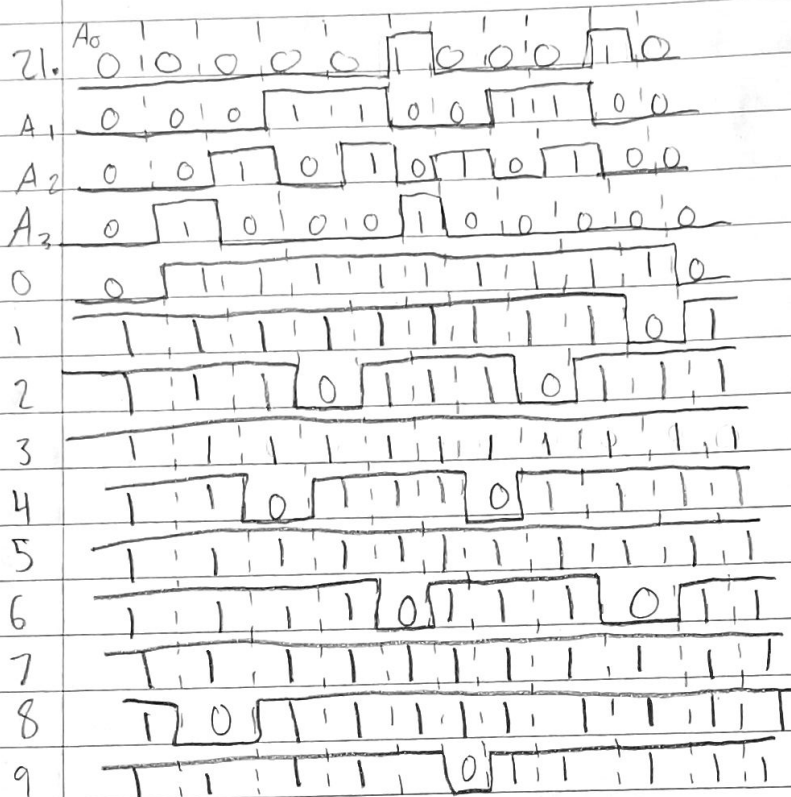 21. A₀ 0 0 0 0 0 1 0 0 0 1 0
A₁ 0 0 0 1 1 0 0 1 1 0 0
A₂ 0 0 1 0 1 0 1 0 1 0 0
A₃ 0 1 0 0 0 1 0 0 0 0 0
0 0 1 1 1 1 1 1 1 1 1 0
1 1 1 1 1 1 1 1 1 1 0 1
2 1 1 1 0 1 1 1 0 1 1 1
3 1 1 1 1 1 1 1 1 1 1 1
4 1 1 0 1 1 1 0 1 1 1 1
5 1 1 1 1 1 1 1 1 1 1 1
6 1 1 1 1 0 1 1 1 0 1 1
7 1 1 1 1 1 1 1 1 1 1 1
8 1 0 1 1 1 1 1 1 1 1 1
9 1 1 1 1 1 0 1 1 1 1 1